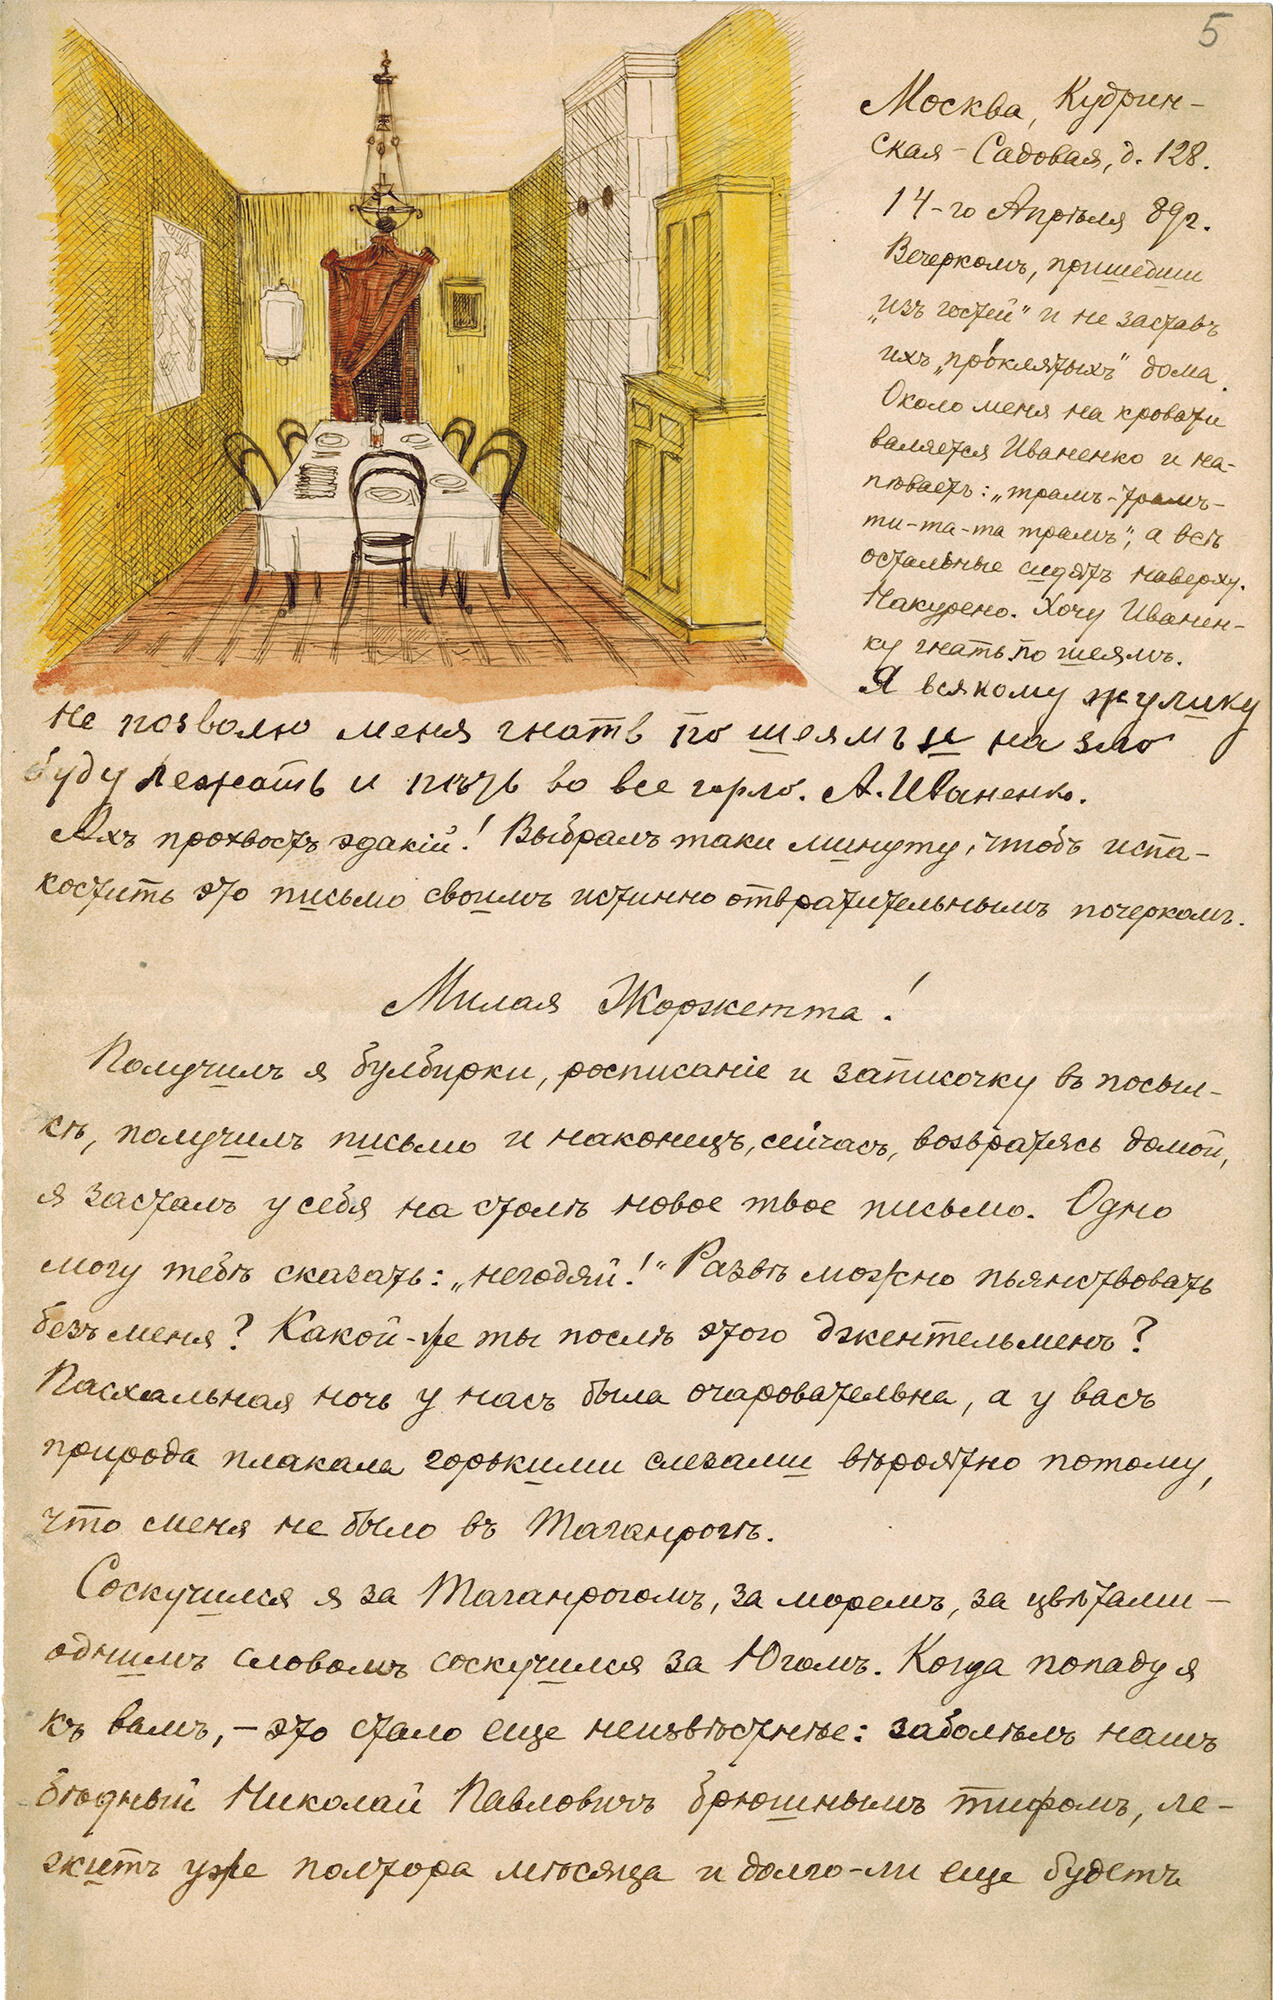 5
Москва, Кудрин-
ская-Садовая, д. 128.
14-го Апрѣля 89г.
Вечеркомъ, пришедши
„изъ гостей“ и не заставъ
ихъ „проклятыхъ“ дома.
Около меня на кровати
валяется Иваненко и на-
пѣваетъ: „трамъ-трамъ-
ти-та-та трамъ“, а всѣ
остальные сидятъ наверху.
Накурено. Хочу Иванен-
ку гнать по шеямъ.
Я всякому жулику
не позволю меня гнать по шеямъ и на зло
буду лежать и пѣть во все горло. А. Иваненко.
Ахъ прохвостъ эдакій! Выбралъ таки минуту, чтобъ испа-
костить это письмо своимъ истинно отвратительнымъ почеркомъ.
Милая Жоржетта!
Получилъ я булбирки, росписаніе и записочку въ посыл-
кѣ, получилъ письмо и наконецъ, сейчасъ, возвратясь домой,
я засталъ у себя на столѣ новое твое письмо. Одно
могу тебѣ сказать: „негодяй!“ Развѣ можно пьянствовать
безъ меня? Какой-же ты послѣ этого джентельменъ?
Пасхальная ночь у насъ была очаровательна, а у васъ
природа плакала горькими слезами вѣроятно потому,
что меня не было въ Таганрогѣ.
Соскучился я за Таганрогомъ, за моремъ, за цвѣтами —
однимъ словомъ соскучился за Югомъ. Когда попаду я
къ вамъ, — это стало еще неизвѣстнѣе: заболѣлъ нашъ
бѣдный Николай Павловичъ брюшнымъ тифомъ, ле-
житъ уже полтора мѣсяца и долго-ли еще будетъ